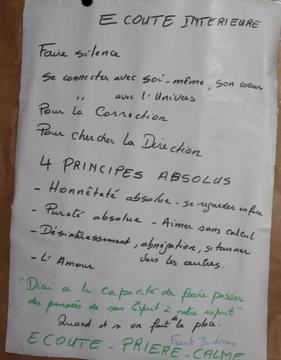 ECOUTE INTERIEURE
Faire silence
Se connecter avec soi-même, son coeur
" avec l'Univers
Pour la Correction
Pour chercher la Direction
4 PRINCIPES ABSOLUS
- Honnêteté absolue - se regarder en face
- Pureté absolue - Aimer sans calcul
- Désintéressement, abnégation, se tourner
vers les autres.
- L'Amour
"Dieu a la capacité de faire passer
des pensées de son Esprit à notre esprit"
Quand et si on fait de la place.
Frank Buchman
ECOUTE - PRIERE - CALME